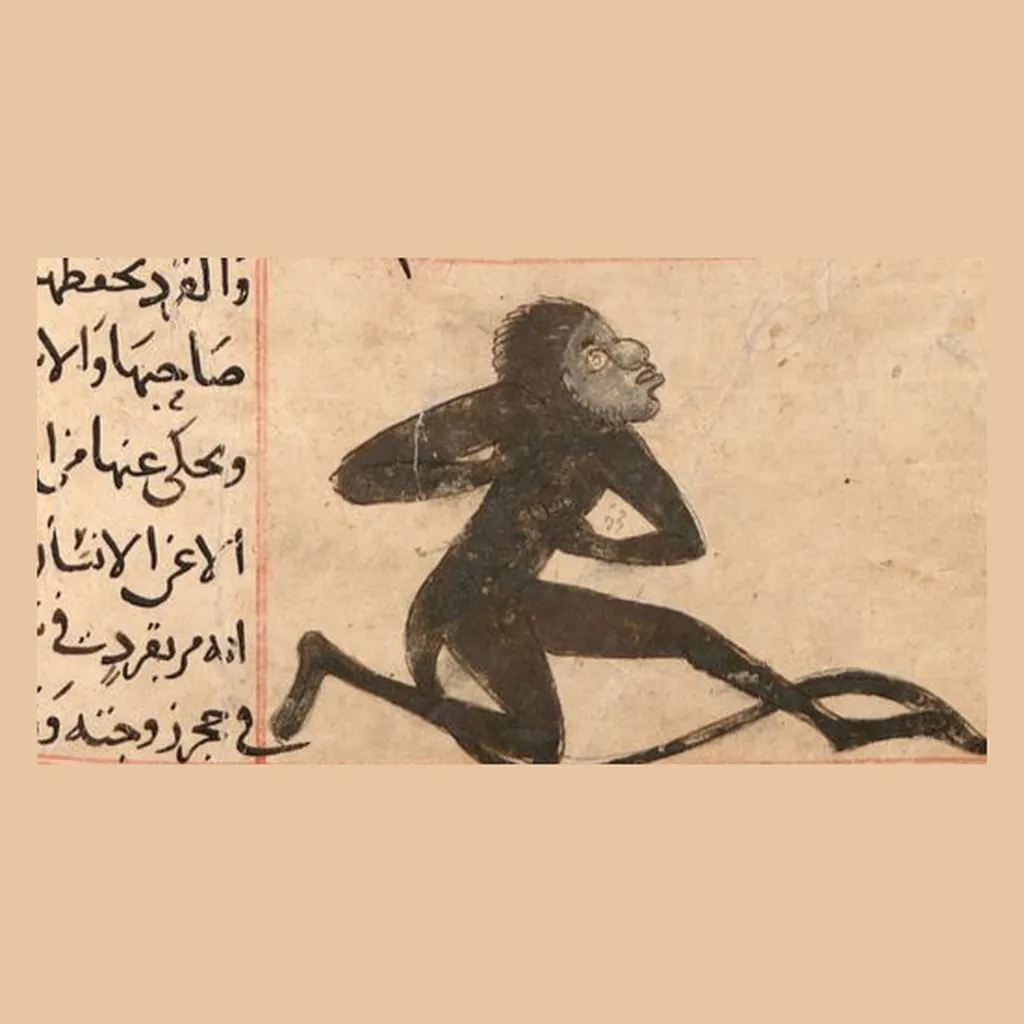 والقرد يحفظها
صاحبها والا
ويحكى عنها من ا
ألاغز الانسان
انه مر بقرد في
في حجر زوجته و